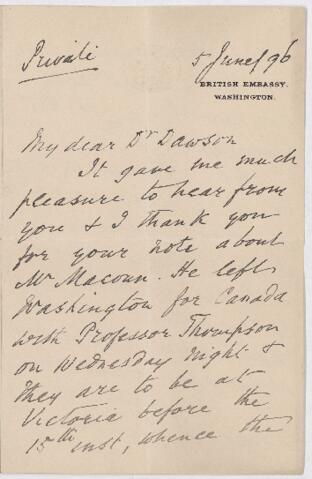 Private
5 June/96
BRITISH EMBASSY.
WASHINGTON.
My dear Dr Dawson
It gave me much
pleasure to hear from
you & I thank you
for your note about
Mr Macoun. He left
Washington for Canada
with Professor Thompson
on Wednesday night &
they are to be at
Victoria before the
15th inst, whence the